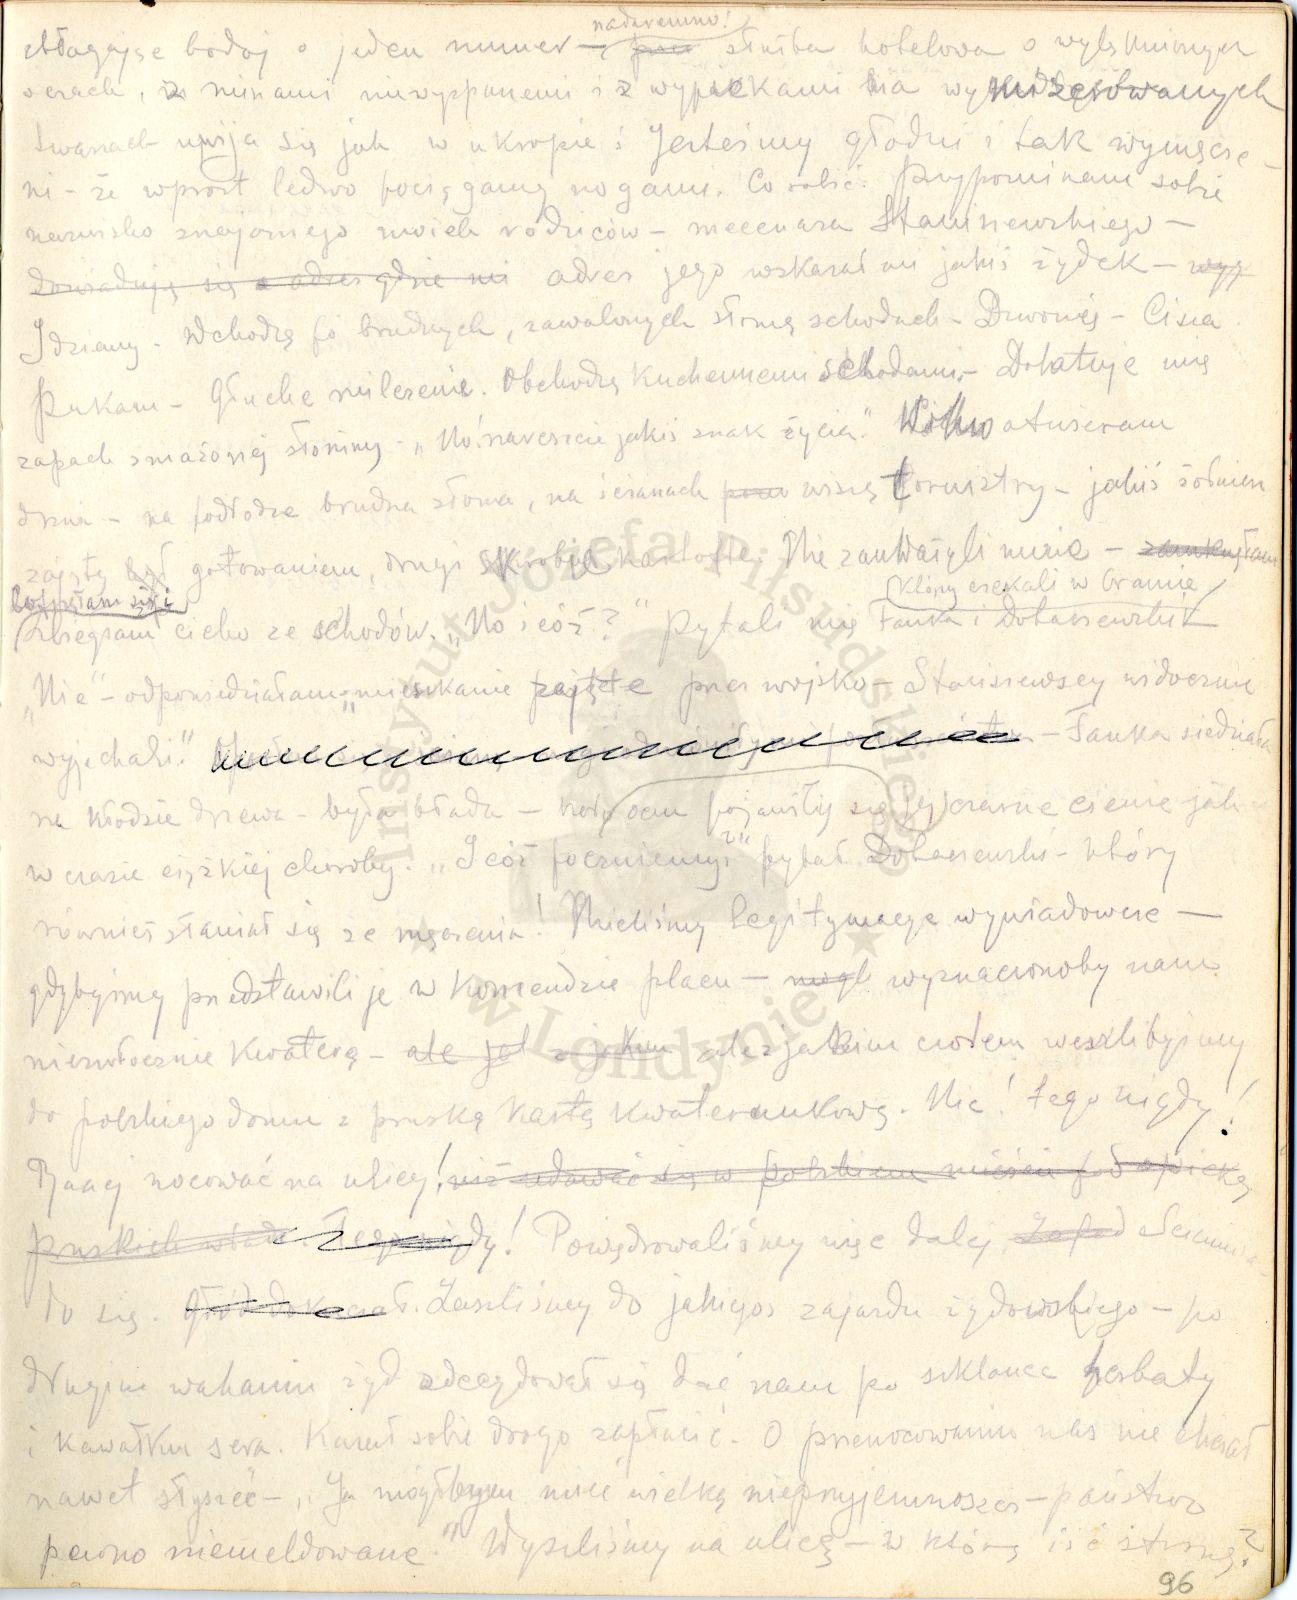 nadaremno!
błagając bodaj o jeden numer — służba hotelowa o wybłyskujących
oczach, z minami niewyspanemi i z wypiekami na
twarzach uwija się jak w ukropie i Jesteśmy głodni i tak wymęcze-
ni – że wprost ledwo pociągamy nogami. Co robić. Przypominam sobie
nazwisko znajomego moich rodziców – mecenasa Staniszewskiego –
dowiaduję się o adres gdzie mi adres jego wskazał mi jakiś żydek –
Idziemy – Wchodzę po brudnych, zawalonych słomą schodach – Dzwonię – Cisza
Pukam – Głuche milczenie. Obchodzę kuchennemi schodami – Dolatuje mię
zapach smażonej słoniny – „No! nareszcie jakiś znak życia." Cicho otwieram
drzwi – na podłodze brudna słoma, na ścianach wiszą tornistry – jakiś żołnierz
zajęty był gotowaniem, drugi skrobie kartofle. Nie zauważyli mnie –
którzy czekali w bramie
cofnęłam się i
zbiegłam cicho ze schodów. „No i cóż?" Pytali mię Fanka i Dobaczewski
„Nie" – odpowiedziałam – „mieszkanie zajęte przez wojsko – Staniszewscy widocznie
wyjechali." – Fanka siedziała
na kłodzie drzewa – była blada – koło oczu pojawiły się jej czarne cienie jak
w czasie ciężkiej choroby. „I cóż poczniemy?" pytał Dobaczewski – który
również słaniał się ze męczenia! Mieliśmy legitymacje wywiadowcze –
gdybyśmy przedstawili je w komendzie placu – mogl wyznaczonoby nam
niezwłocznie kwaterę – ale jak z jakim ale z jakim czołem weszlibyśmy
do polskiego domu z pruską kartą kwaterunkową. Nie! tego nigdy!
Raczej nocować na ulicy! niż udawać się w polskiem mieście pod opiekę
pruskich władz. Tego nigdy! Powędrowaliśmy więc dalej. Ściemnia-
ło się. Zaszliśmy do jakiegoś zajazdu żydowskiego – po
długim wahaniu żyd zdecydował się dać nam po szklance herbaty
i kawałku sera. Kazał sobie drogo zapłacić. O przenocowaniu nas nie chciał
nawet słyszeć – „Ja mógłbym mieć wielką nieprzyjemność – państwo
pewno niemeldowane." Wyszliśmy na ulicę – w którą iść stronę?
96
Instytut Józefa Piłsudskiego
w Londynie